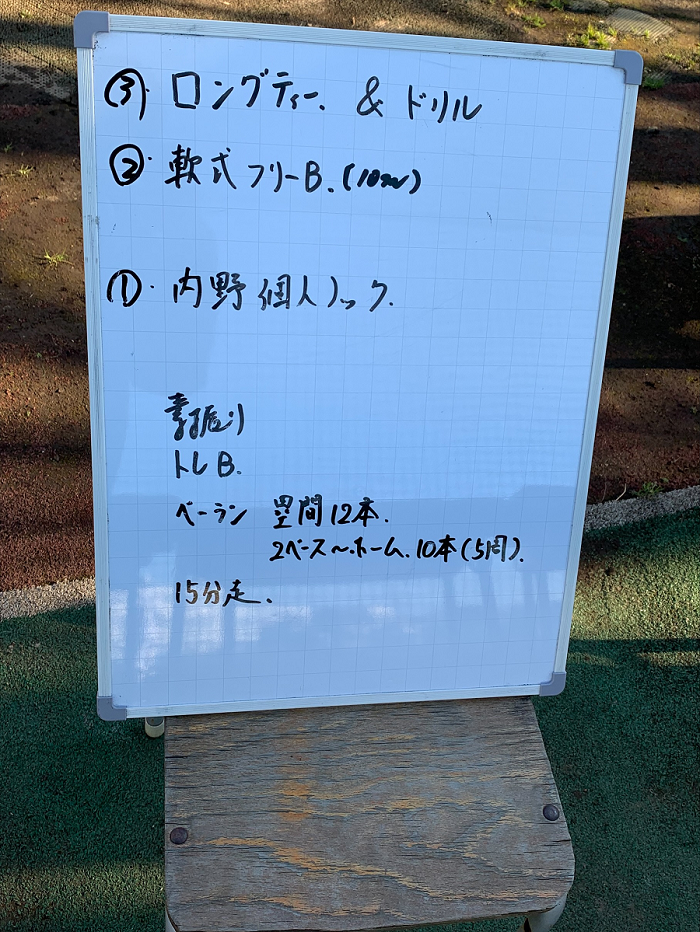 ③. ロングティー. & ドリル
②. 軟式フリーB.
①. 内野個人ノック.
素振り
トレB.
ベーラン 塁間12本.
2ベース〜ホーム. 10本(5周).
15分走.